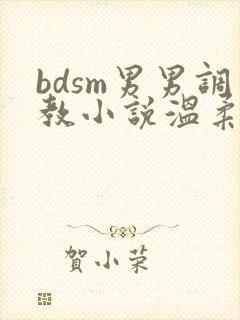 bdsm男男調
教小說溫柔
賀小荣